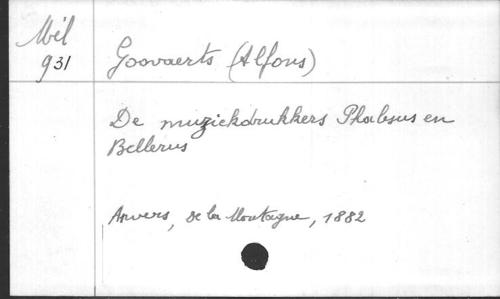 Mél
931
Goovaerts (Alfons)
De muziekdrukkers Phalesus en
Bellerus
Anvers, De la Montagne, 1882